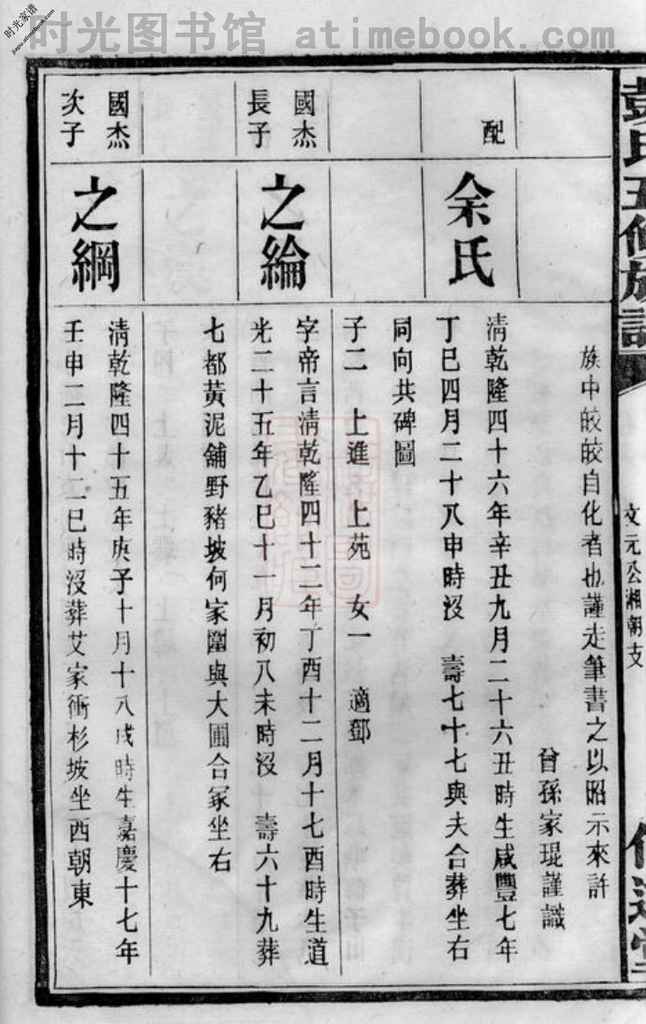 时光图书馆 - atimebook.com
时光家谱
彭氏五修族譜
文元公湘朝支
族中皎皎自化者也謹走筆書之以昭示來許
曾孫家琨謹識
配
余氏
清乾隆四十六年辛丑九月二十六丑時生咸豐七年
丁巳四月二十八申時沒 壽七十七與夫合葬坐右
同向共碑圖
子二 上進 上苑 女一 適鄧
國杰
長子
之綸
字帝言清乾隆四十二年丁酉十二月十七酉時生道
光二十五年乙巳十一月初八未時沒 壽六十九葬
七都黃泥舖野豬坡何家圍與大圃合冢坐右
國杰
次子
之綱
清乾隆四十五年庚子十月十八戌時生嘉慶十七年
壬申二月十二巳時沒葬艾家衝杉坡坐西朝東